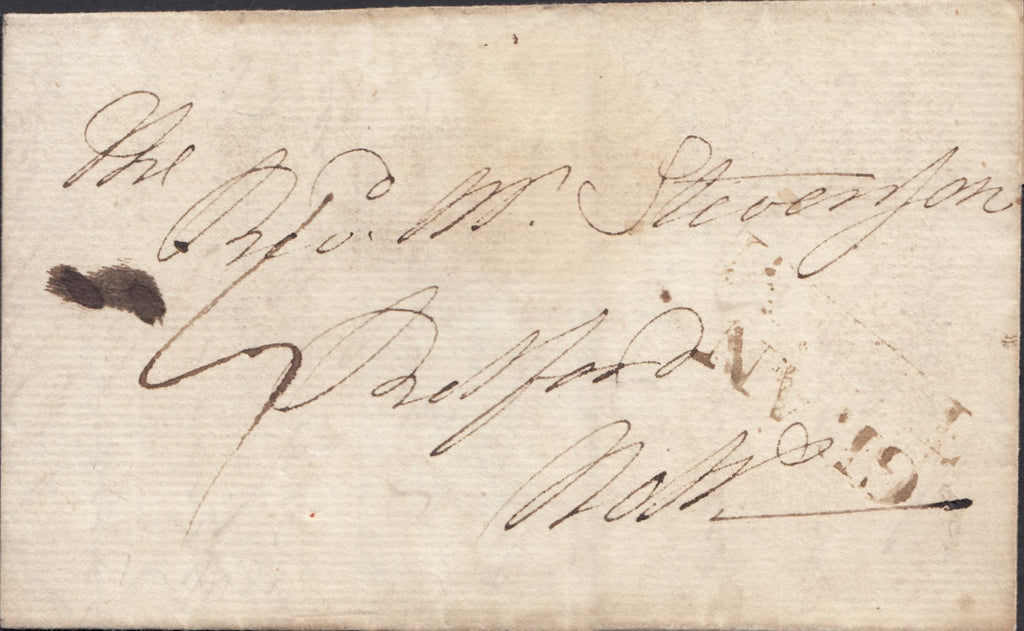 The
Revd. Mr. Stevenson
Retford
Notts